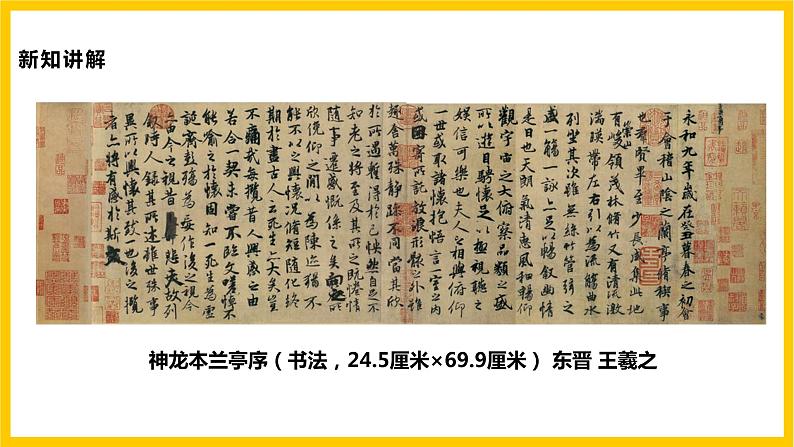 新知讲解
永和九年歲在癸丑暮春之初會
于會稽山陰之蘭亭脩稧事
也群賢畢至少長咸集此地
有崇山峻領茂林脩竹又有清流激
湍暎帶左右引以為流觴曲水
列坐其次雖無絲竹管弦之
盛一觴一詠亦足以暢敘幽情
是日也天朗氣清惠風和暢仰
觀宇宙之大俯察品類之盛
所以遊目騁懷足以極視聽之
娛信可樂也夫人之相與俯仰
一世或取諸懷抱悟言一室之內
或因寄所託放浪形骸之外雖
趣舍萬殊靜躁不同當其欣
於所遇蹔得於己怏然自足不
知老之將至及其所之既惓情
隨事遷感慨係之矣向之所
欣俛仰之閒以為陳迹猶不
能不以之興懷況脩短隨化終
期於盡古人云死生亦大矣豈
不痛哉每攬昔人興感之由
若合一契未嘗不臨文嗟悼不
能喻之於懷固知一死生為虛
誕齊彭殤為妄作後之視今
亦由今之視昔悲夫故列
敘時人錄其所述雖世殊事
異所以興懷其致一也後之攬
者亦將有感於斯文
神龙本兰亭序（书法，24.5厘米×69.9厘米） 东晋 王羲之